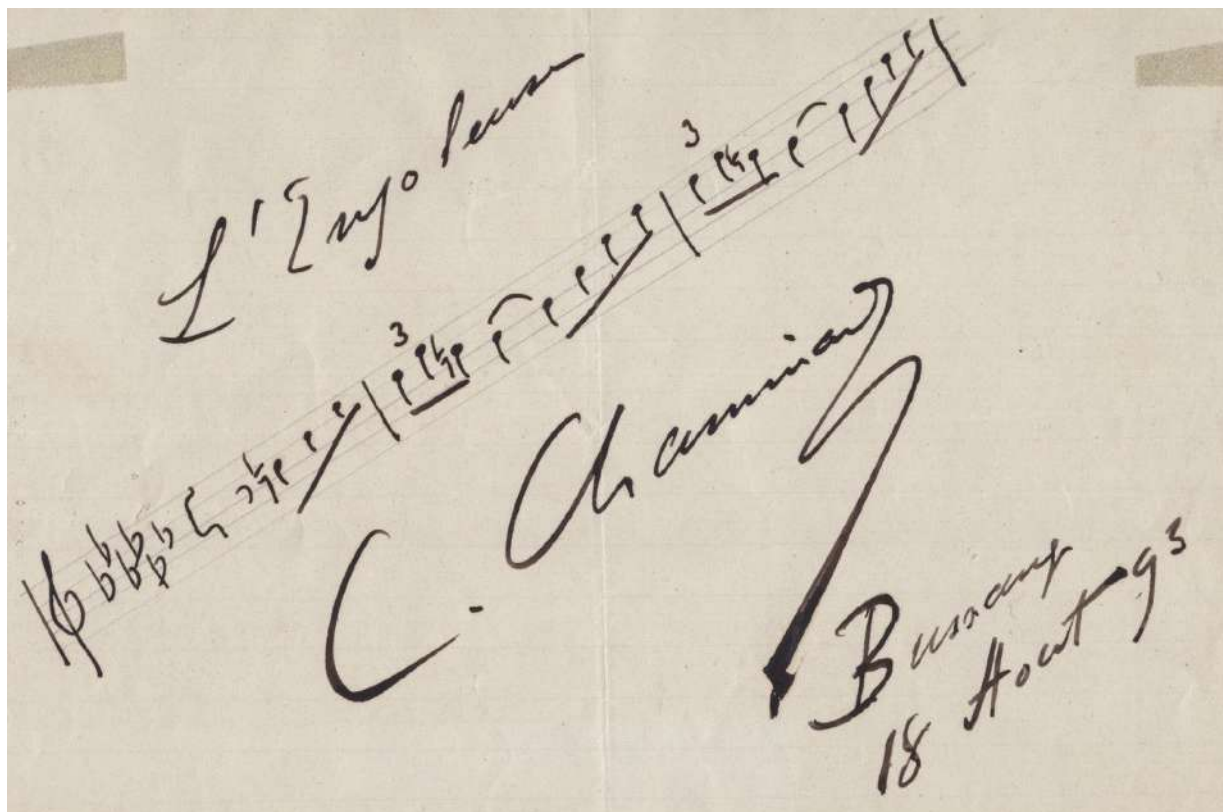 L'Enjoleuse
3
3
C. Chaminade
Bussang
18 Aout 93